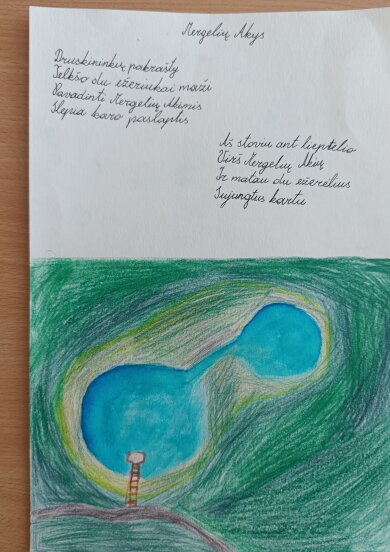 Mergelių Akys
Druskininkų pakrašty
Telkšo du ežeriukai maži
Pavadinti Mergelių Akimis
Slepia karo paslaptis
Aš stoviu ant lieptelio
Virš Mergelių Akių
Ir matau du ežerėlius
Sujungtus kartu